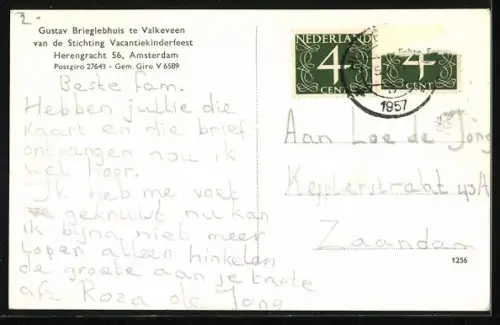 2.-
Gustav Brieglebhuis te Valkeveen
van de Stichting Vacantiekinderfeest
Herengracht 56, Amsterdam
Postgiro 27643 - Gem. Giro V 6589
Beste fam.
Hebben jullie die
kaart en die brief
ontvangen nou ik
wel hoor.
Ik heb me voet
gekneuwt nu kan
ik bijna niet meer
lopen alleen hinkelen
de groete aan je tante
afz Roza de Jong
NEDERLAND
4
CENT
4
CENT
1957
Aan Loe de Jong
Kepplerstraht 40A
Zaandam
1256